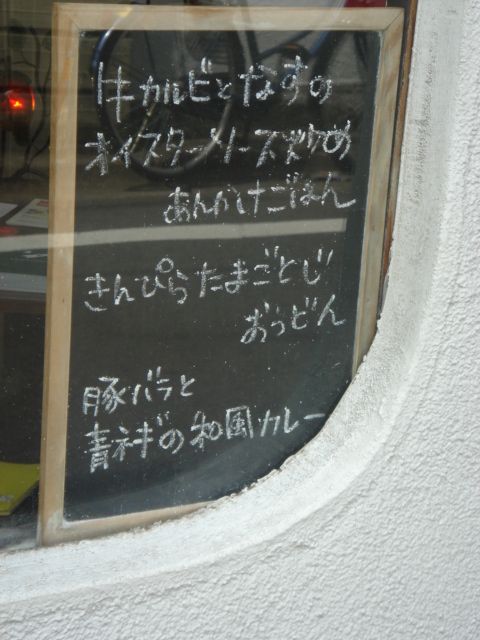 牛カルビとなすの
オイスターソース炒めの
あんかけごはん
きんぴらたまごとじ
おうどん
豚バラと
青ネギの和風カレー